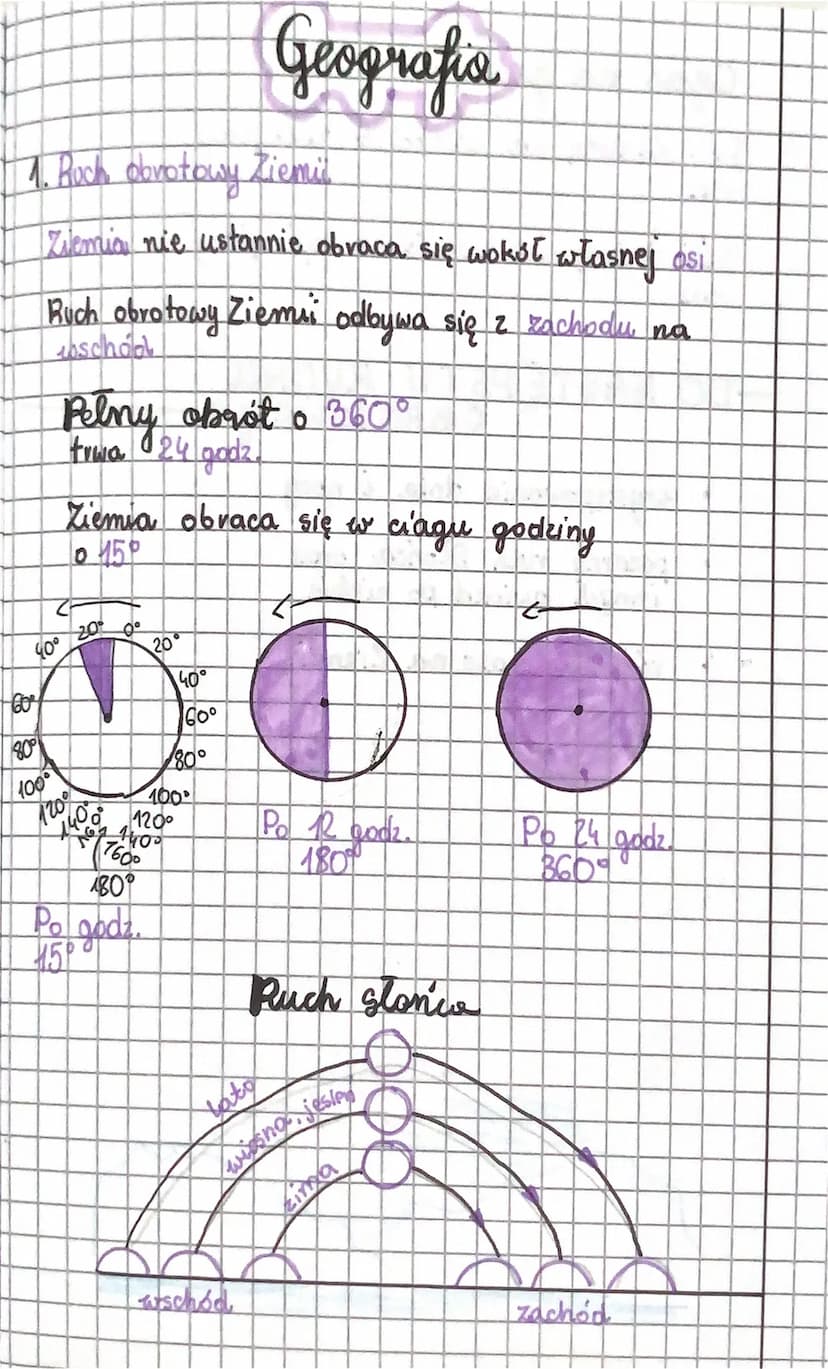 Geografia
1. Ruch obrotowy Ziemii
Ziemia nie ustannie obraca się wokół własnej osi
Ruch obrotowy Ziemii odbywa się z zachodu na
wschód
Pełny obrót o 360°
trwa 24 godz.
Ziemia obraca się w ciągu godziny
o 15°
40° 20° 0° 20°
40°
60° 60°
80° 80°
100° 100°
120° 120°
140° 140°
160°
180°
Po godz.
15°
Po 12 godz.
180°
Po 24 godz.
360°
Ruch słońca
lato
wiosna, jesień
zima
wschód zachód